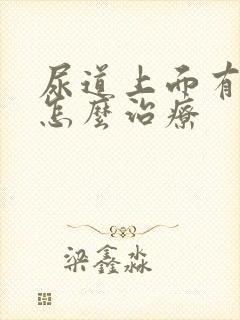 尿道上面有
怎麼治療
梁鑫淼